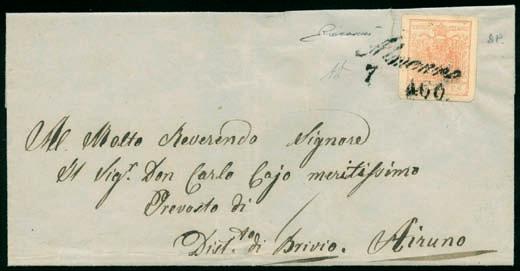 7
AGO.
Al Molto Reverendo Signore
Il Sigr. Don Carlo Cajo meritissimo
Prevosto di
Distto. di Brivio. Airuno